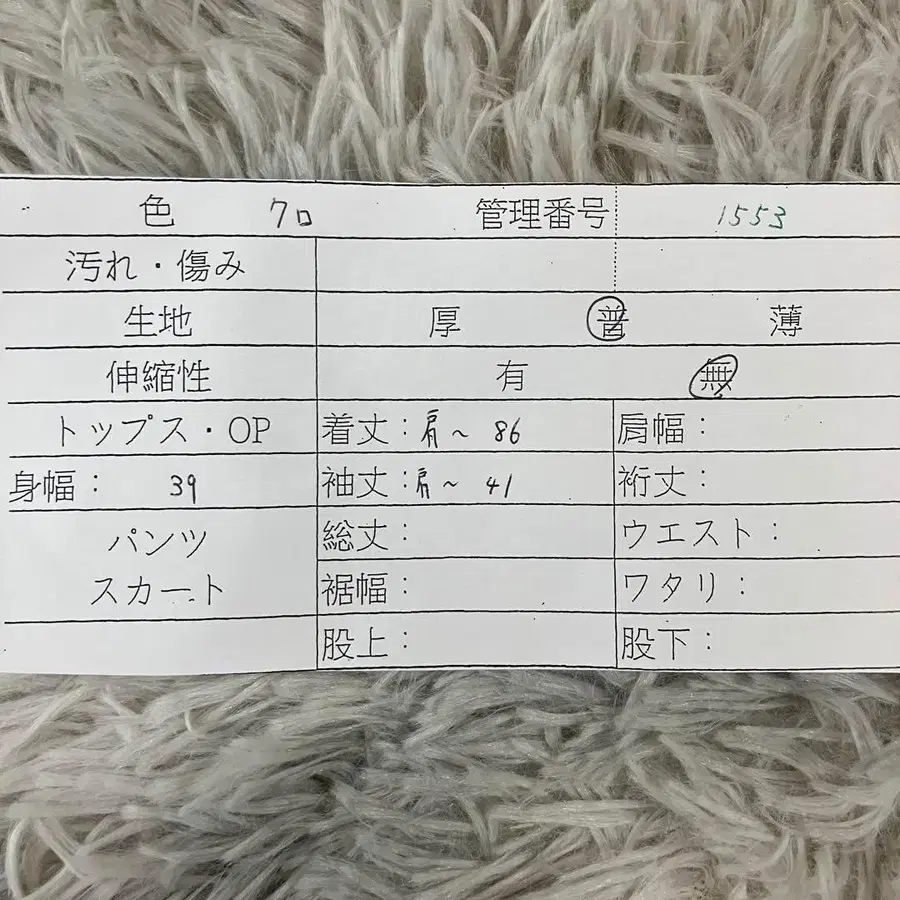 色 クロ 管理番号 1553
汚れ・傷み
生地 厚 普 薄
伸縮性 有 無
トップス・OP 着丈：肩～ 86 肩幅：
身幅： 39 袖丈：肩～ 41 裄丈：
パンツ 総丈： ウエスト：
スカート 裾幅： ワタリ：
股上： 股下：